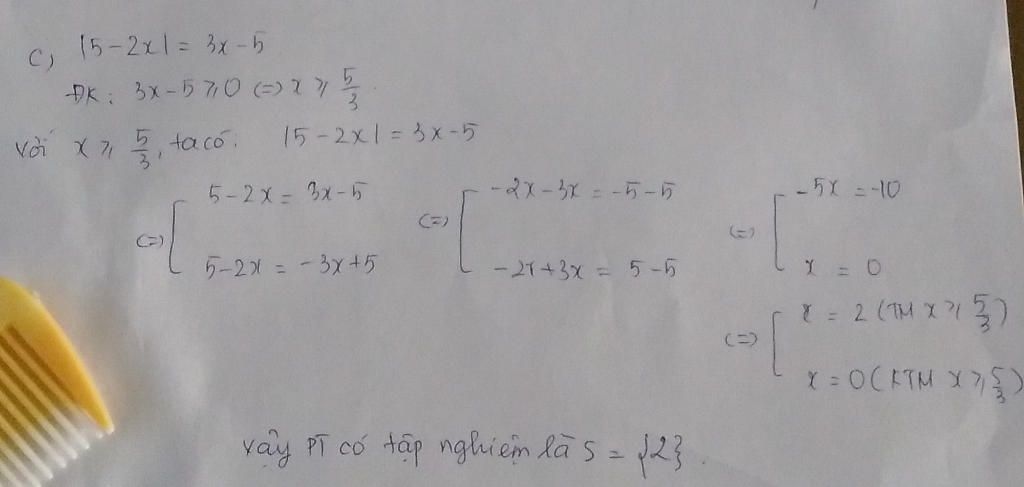 c, |5-2x| = 3x-5
ĐK: 3x-5 ⩾ 0 (=) x ⩾ 5/3
với x ⩾ 5/3, ta có: |5-2x| = 3x-5
(=) [ 5-2x = 3x-5 (=) [ -2x-3x = -5-5 (=) [ -5x = -10
5-2x = -3x+5 -2x+3x = 5-5 x = 0
(=) [ x = 2 (TM x ⩾ 5/3)
x = 0 (KTM x ⩾ 5/3)
vậy PT có tập nghiệm là S = {2}.